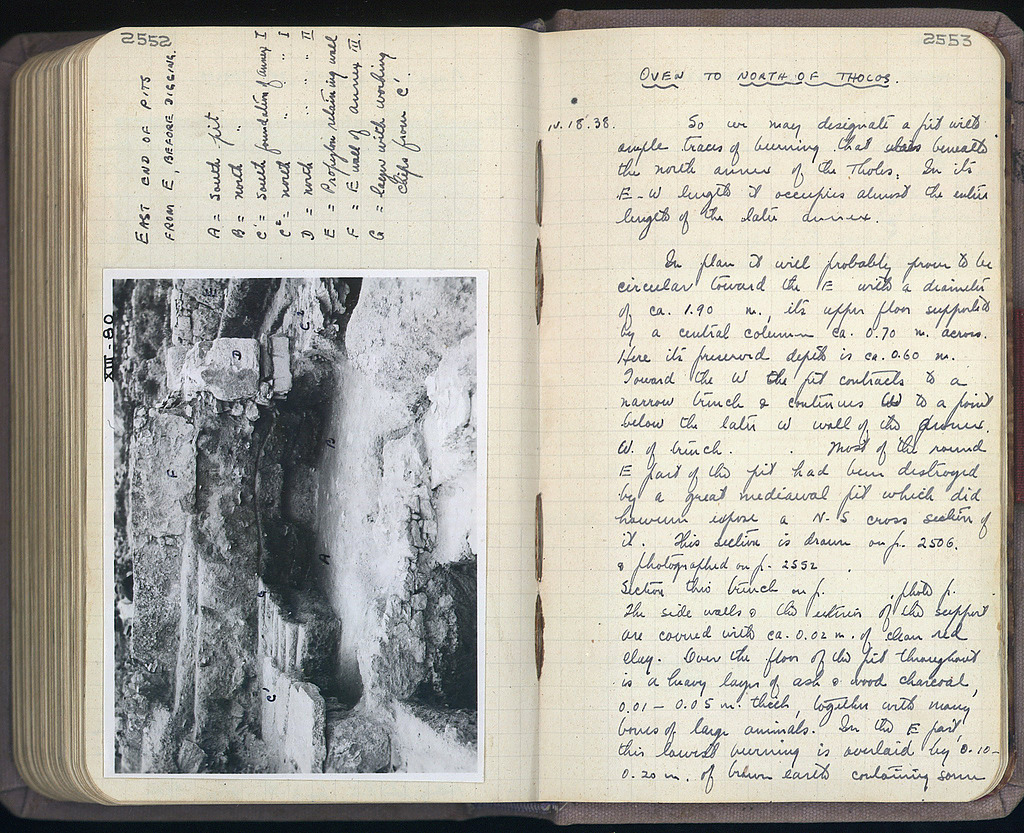 2552
EAST END OF PITS
FROM E, BEFORE DIGGING.
A = South pit
B = north "
C' = South foundation of annex I
C² = north " " I
D = north " " " II
E = Propylon retaining wall
F = E wall of annex III.
G = layer with working
chips from C'
XIII-80
F
E
D
C²
B
A
G
C'
2553
OVEN TO NORTH OF THOLOS.
IV.18.38. So we may designate a pit with
ample traces of burning that was beneath
the north annex of the Tholos. In its
E-W length it occupies almost the entire
length of the later annex.
In plan it will probably prove to be
circular toward the E with a diameter
of ca. 1.90 m., its upper floor supported
by a central column ca. 0.70 m. across.
Here its preserved depth is ca. 0.60 m.
Toward the W the pit contracts to a
narrow trench & continues W to a point
below the later W wall of the annex.
W. of trench. . Most of the round
E part of the pit had been destroyed
by a great mediaeval pit which did
however expose a N-S cross section of
it. This section is drawn on p. 2506.
& photographed on p. 2552 .
Section this trench on p. , photo p.
The side walls & the exterior of the support
are covered with ca. 0.02 m. of clean red
clay. Over the floor of the pit throughout
is a heavy layer of ash & wood charcoal,
0.01 - 0.05 m. thick, together with many
bones of large animals. In the E part,
this lowest burning is overlaid by 0.10-
0.20 m. of brown earth containing some